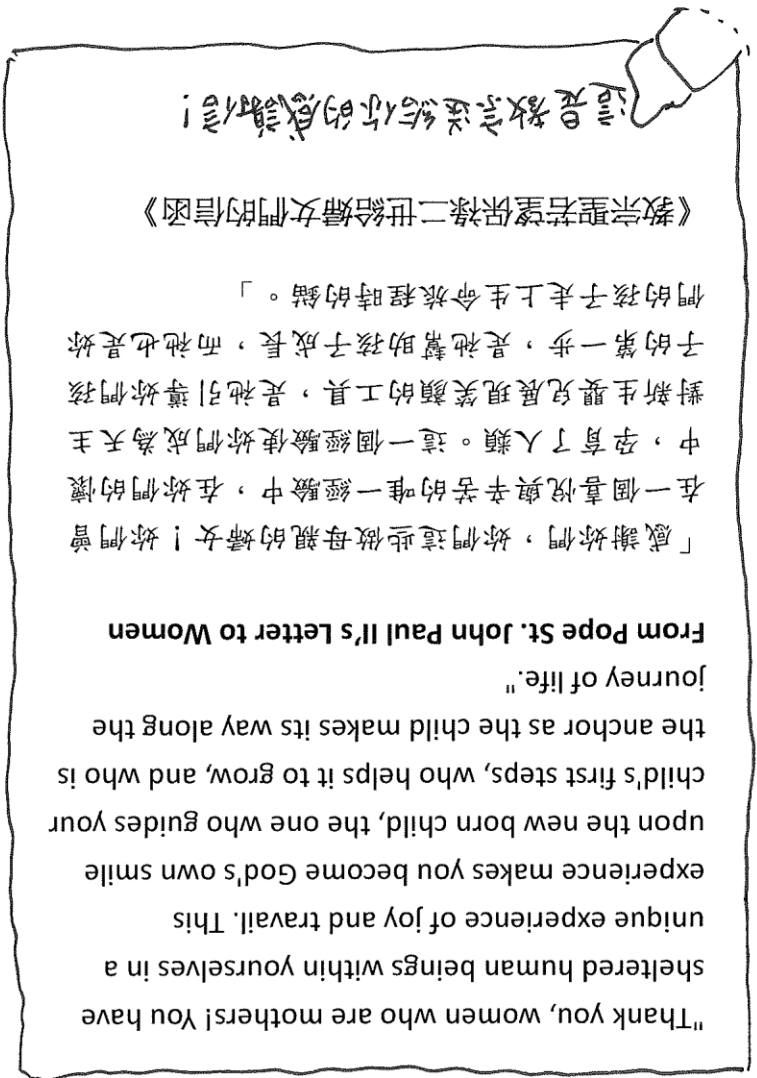 "Thank you, women who are mothers! You have
sheltered human beings within yourselves in a
unique experience of joy and travail. This
experience makes you become God's own smile
upon the new born child, the one who guides your
child's first steps, who helps it to grow, and who is
the anchor as the child makes its way along the
journey of life."
From Pope St. John Paul II's Letter to Women
「感謝妳們，妳們這些做母親的婦女！妳們曾
在一個喜悅與辛苦的唯一經驗中，在妳們的懷
中，孕育了人類。這一個經驗使妳們成為天主
對新生嬰兒展現笑顏的工具，是祂引導妳們孩
子的第一步，是祂幫助孩子成長，而祂也是妳
們的孩子走上生命旅程時的錨。」
《教宗聖若望保祿二世給婦女們的信函》
這是教宗送給你的感謝信！